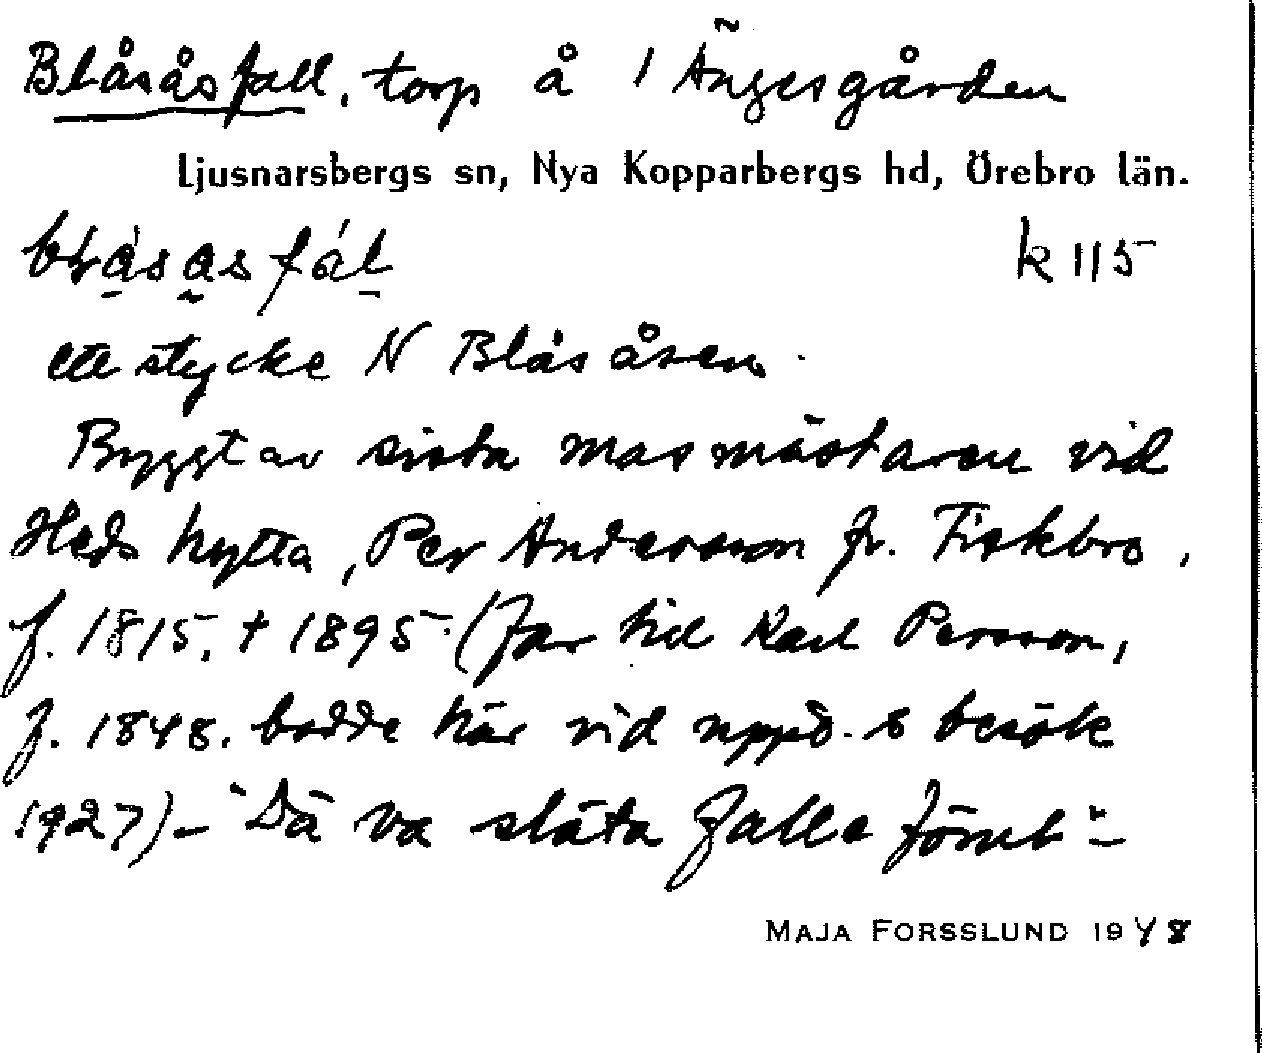 Blåsåsfall, torp å 1 Ängesgården
Ljusnarsbergs sn, Nya Kopparbergs hd, Örebro län.
k 115
ett stycke N Blåsåsen.
Byggt av sista masmästaren vid
Heds hytta, Per Andersson fr. Fiskbro,
f. 1815, † 1895 (far till Karl Persson,
f. 1848, bodde här vid uppt.s besök
1927) - "Dä va släta falle förut" -
MAJA FORSSLUND 1948